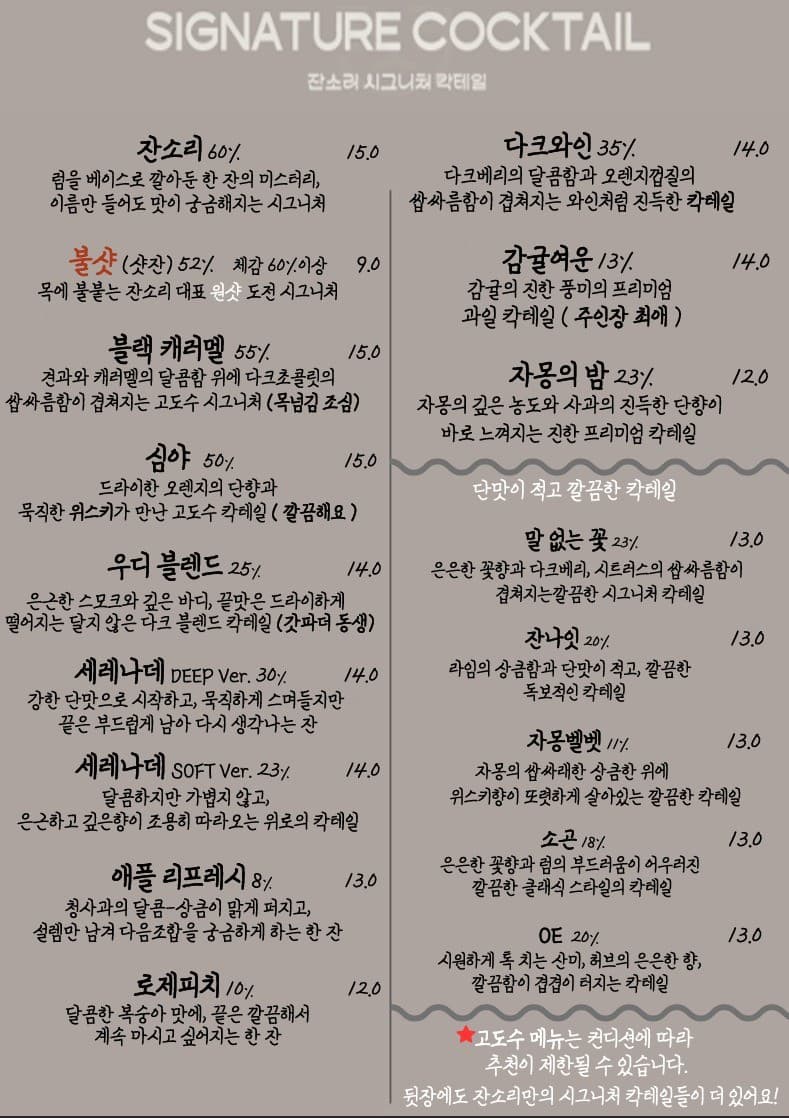 SIGNATURE COCKTAIL
잔소리 시그니처 칵테일
잔소리 60% 15.0
럼을 베이스로 깔아둔 한 잔의 미스터리,
이름만 들어도 맛이 궁금해지는 시그니처
불샷 (샷잔) 52% 체감 60%이상 9.0
목에 불붙는 잔소리 대표 원샷 도전 시그니처
블랙 캐러멜 55% 15.0
견과와 캐러멜의 달콤함 위에 다크초콜릿의
쌉싸름함이 겹쳐지는 고도수 시그니처 (목넘김 조심)
심야 50% 15.0
드라이한 오렌지의 단향과
묵직한 위스키가 만난 고도수 칵테일 ( 깔끔해요 )
우디 블렌드 25% 14.0
은근한 스모크와 깊은 바디, 끝맛은 드라이하게
떨어지는 달지 않은 다크 블렌드 칵테일 (갓파더 동생)
세레나데 DEEP Ver. 30% 14.0
강한 단맛으로 시작하고, 묵직하게 스며들지만
끝은 부드럽게 남아 다시 생각나는 잔
세레나데 SOFT Ver. 23% 14.0
달콤하지만 가볍지 않고,
은근하고 깊은향이 조용히 따라오는 위로의 칵테일
애플 리프레시 8% 13.0
청사과의 달콤-상큼이 맑게 퍼지고,
설렘만 남겨 다음조합을 궁금하게 하는 한 잔
로제피치 10% 12.0
달콤한 복숭아 맛에, 끝은 깔끔해서
계속 마시고 싶어지는 한 잔
다크와인 35% 14.0
다크베리의 달콤함과 오렌지껍질의
쌉싸름함이 겹쳐지는 와인처럼 진득한 칵테일
감귤여운 13% 14.0
감귤의 진한 풍미의 프리미엄
과일 칵테일 ( 주인장 최애 )
자몽의 밤 23% 12.0
자몽의 깊은 농도와 사과의 진득한 단향이
바로 느껴지는 진한 프리미엄 칵테일
단맛이 적고 깔끔한 칵테일
말 없는 꽃 23% 13.0
은은한 꽃향과 다크베리, 시트러스의 쌉싸름함이
겹쳐지는깔끔한 시그니처 칵테일
잔나잇 20% 13.0
라임의 상큼함과 단맛이 적고, 깔끔한
독보적인 칵테일
자몽벨벳 11% 13.0
자몽의 쌉싸래한 상큼한 위에
위스키향이 또렷하게 살아있는 깔끔한 칵테일
소곤 18% 13.0
은은한 꽃향과 럼의 부드러움이 어우러진
깔끔한 클래식 스타일의 칵테일
OE 20% 13.0
시원하게 톡 치는 산미, 허브의 은은한 향,
깔끔함이 겹겹이 터지는 칵테일
고도수 메뉴는 컨디션에 따라
추천이 제한될 수 있습니다.
뒷장에도 잔소리만의 시그니처 칵테일들이 더 있어요!